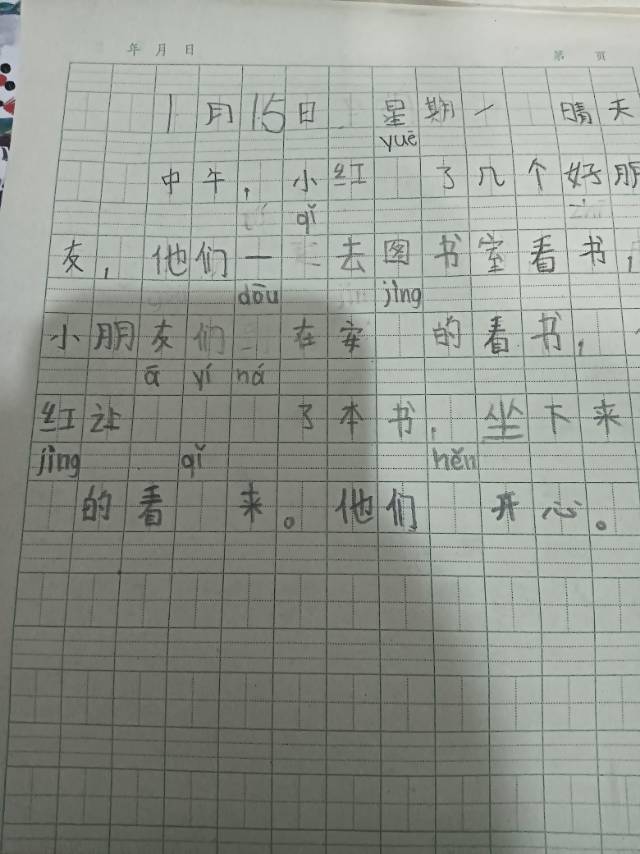 年 月 日 第 页
1月15日 星期一 晴天
yuē
中午，小红 了几个好朋
qǐ
友，他们一 去图书室看书，
dōu jìng
小朋友们 在安 的看书，
ā yí ná
红让 了本书，坐下来
jìng qǐ hěn
的看 来。他们 开心。